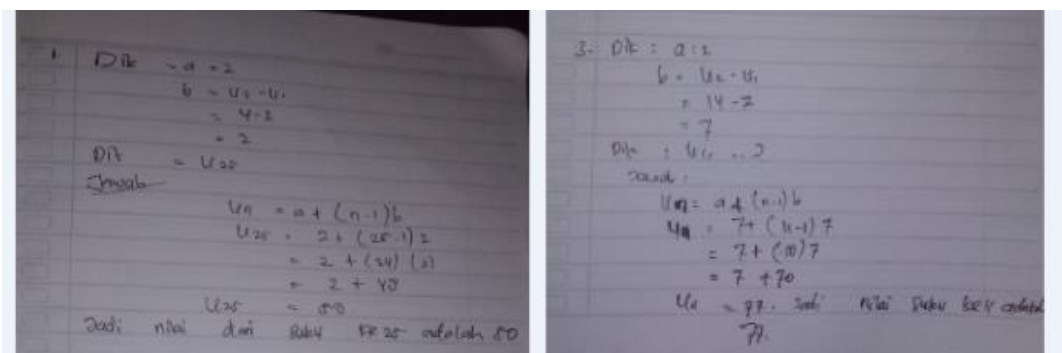 1. Dik = a = 2
b = U2 - U1
= 4-2
= 2
Dit = U25
Jawab
Un = a + (n-1)b
U25 = 2 + (25-1) 2
= 2 + (24) (2)
= 2 + 48
U25 = 50
Jadi nilai dari Suku ke 25 adalah 50
3. Dik : a :
b = U2 - U1
= 14 - 7
= 7
Dit :
Jawab :
Un = a + (n-1) b
= 7 + (11-1) 7
= 7 + (10) 7
= 7 + 70
= 77. Jadi nilai suku adalah
77.